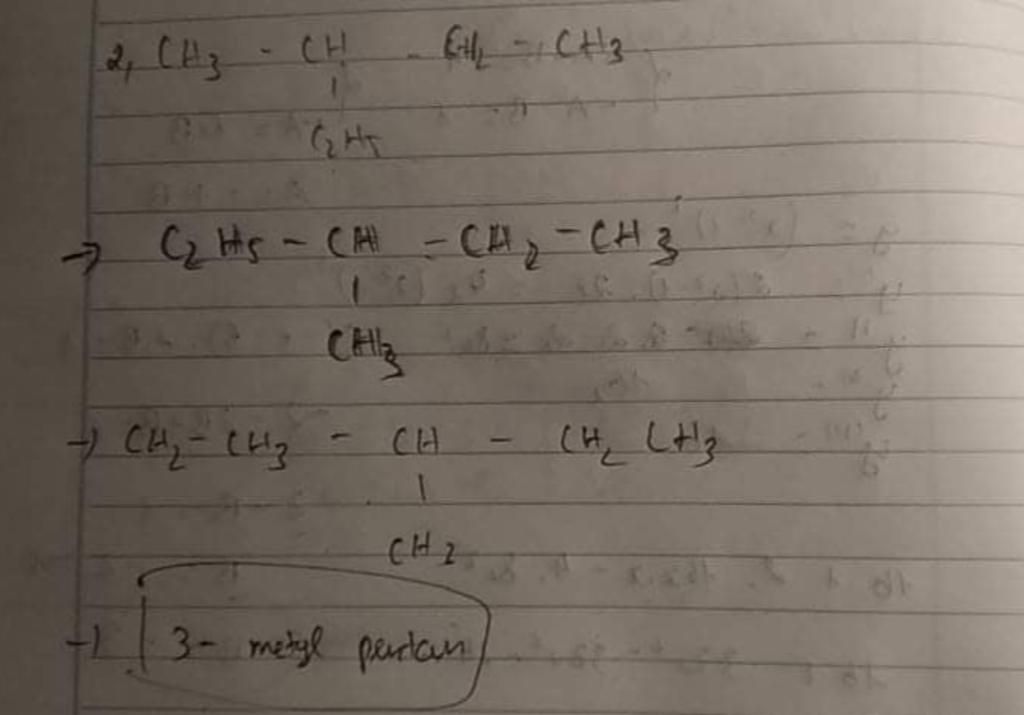 2, CH3 - CH - CH2 - CH3
|
C2H5
→ C2H5 - CH - CH2 - CH3
|
CH3
→ CH2 - CH3 - CH - CH2 CH3
|
CH2
→ 3- metyl pentan